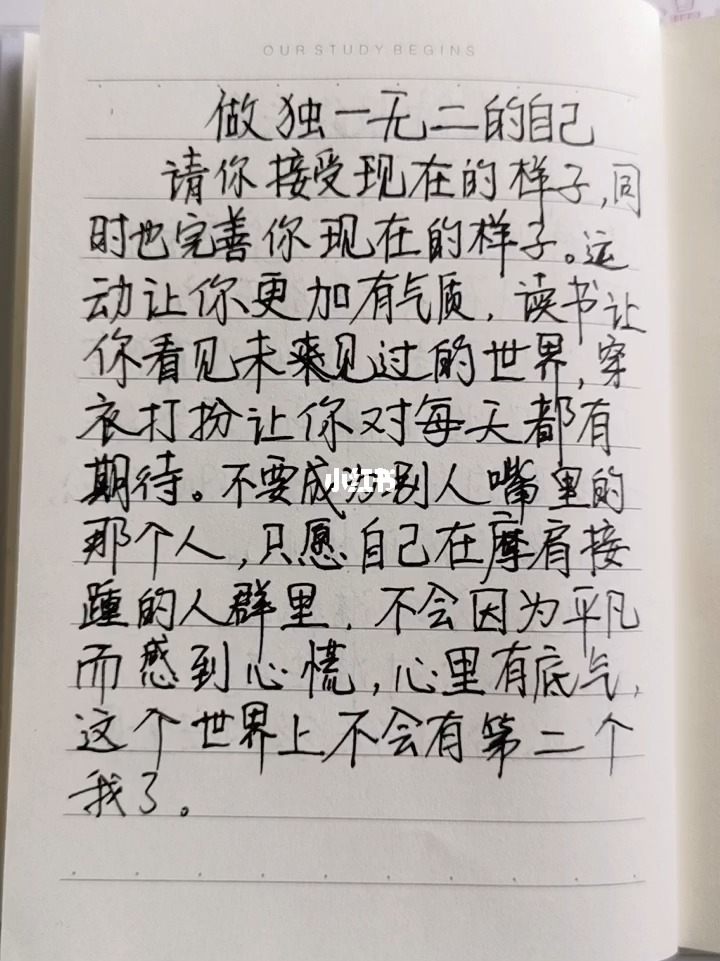 OUR STUDY BEGINS
做独一无二的自己
请你接受现在的样子,同
时也完善你现在的样子。运
动让你更加有气质,读书让
你看见未来见过的世界,穿
衣打扮让你对每天都有
期待。不要成为别人嘴里的
那个人,只愿自己在摩肩接
踵的人群里,不会因为平凡
而感到心慌,心里有底气,
这个世界上不会有第二个
我了。
小红书